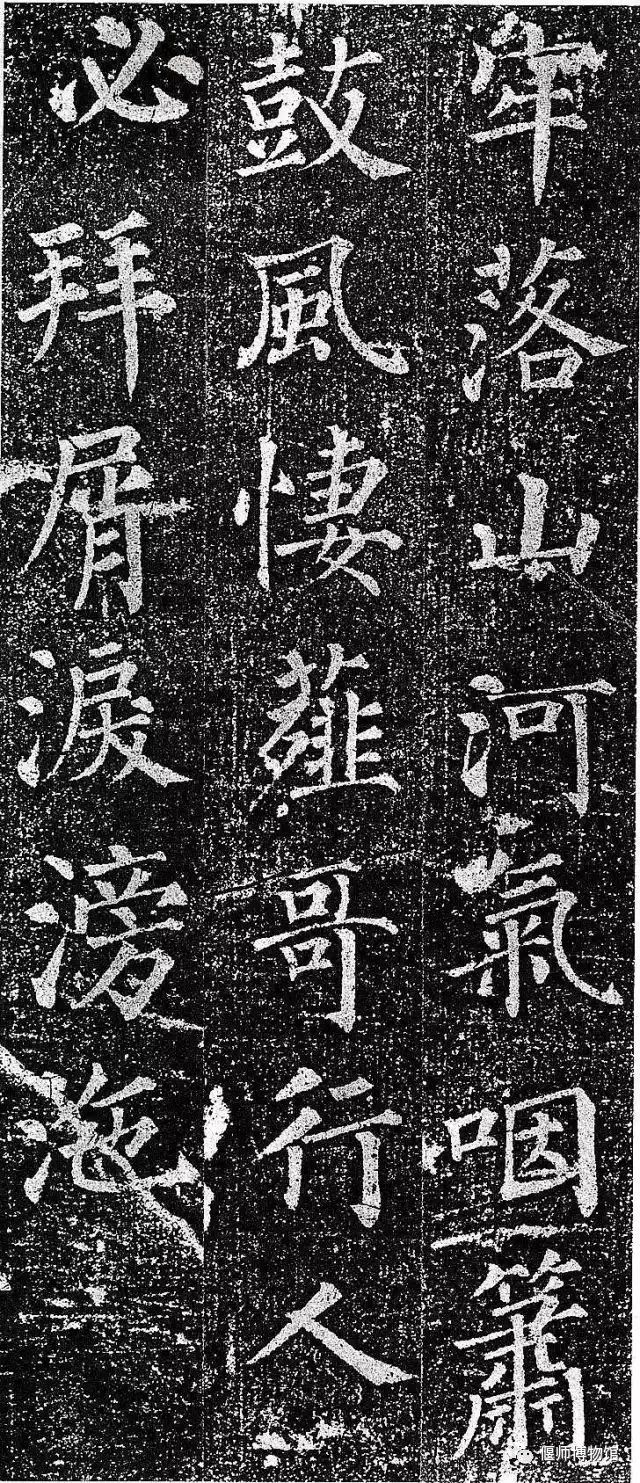 牢落山河氣咽簫
鼓風悽薤哥行人
必拜屑淚滂沲
偃师博物馆